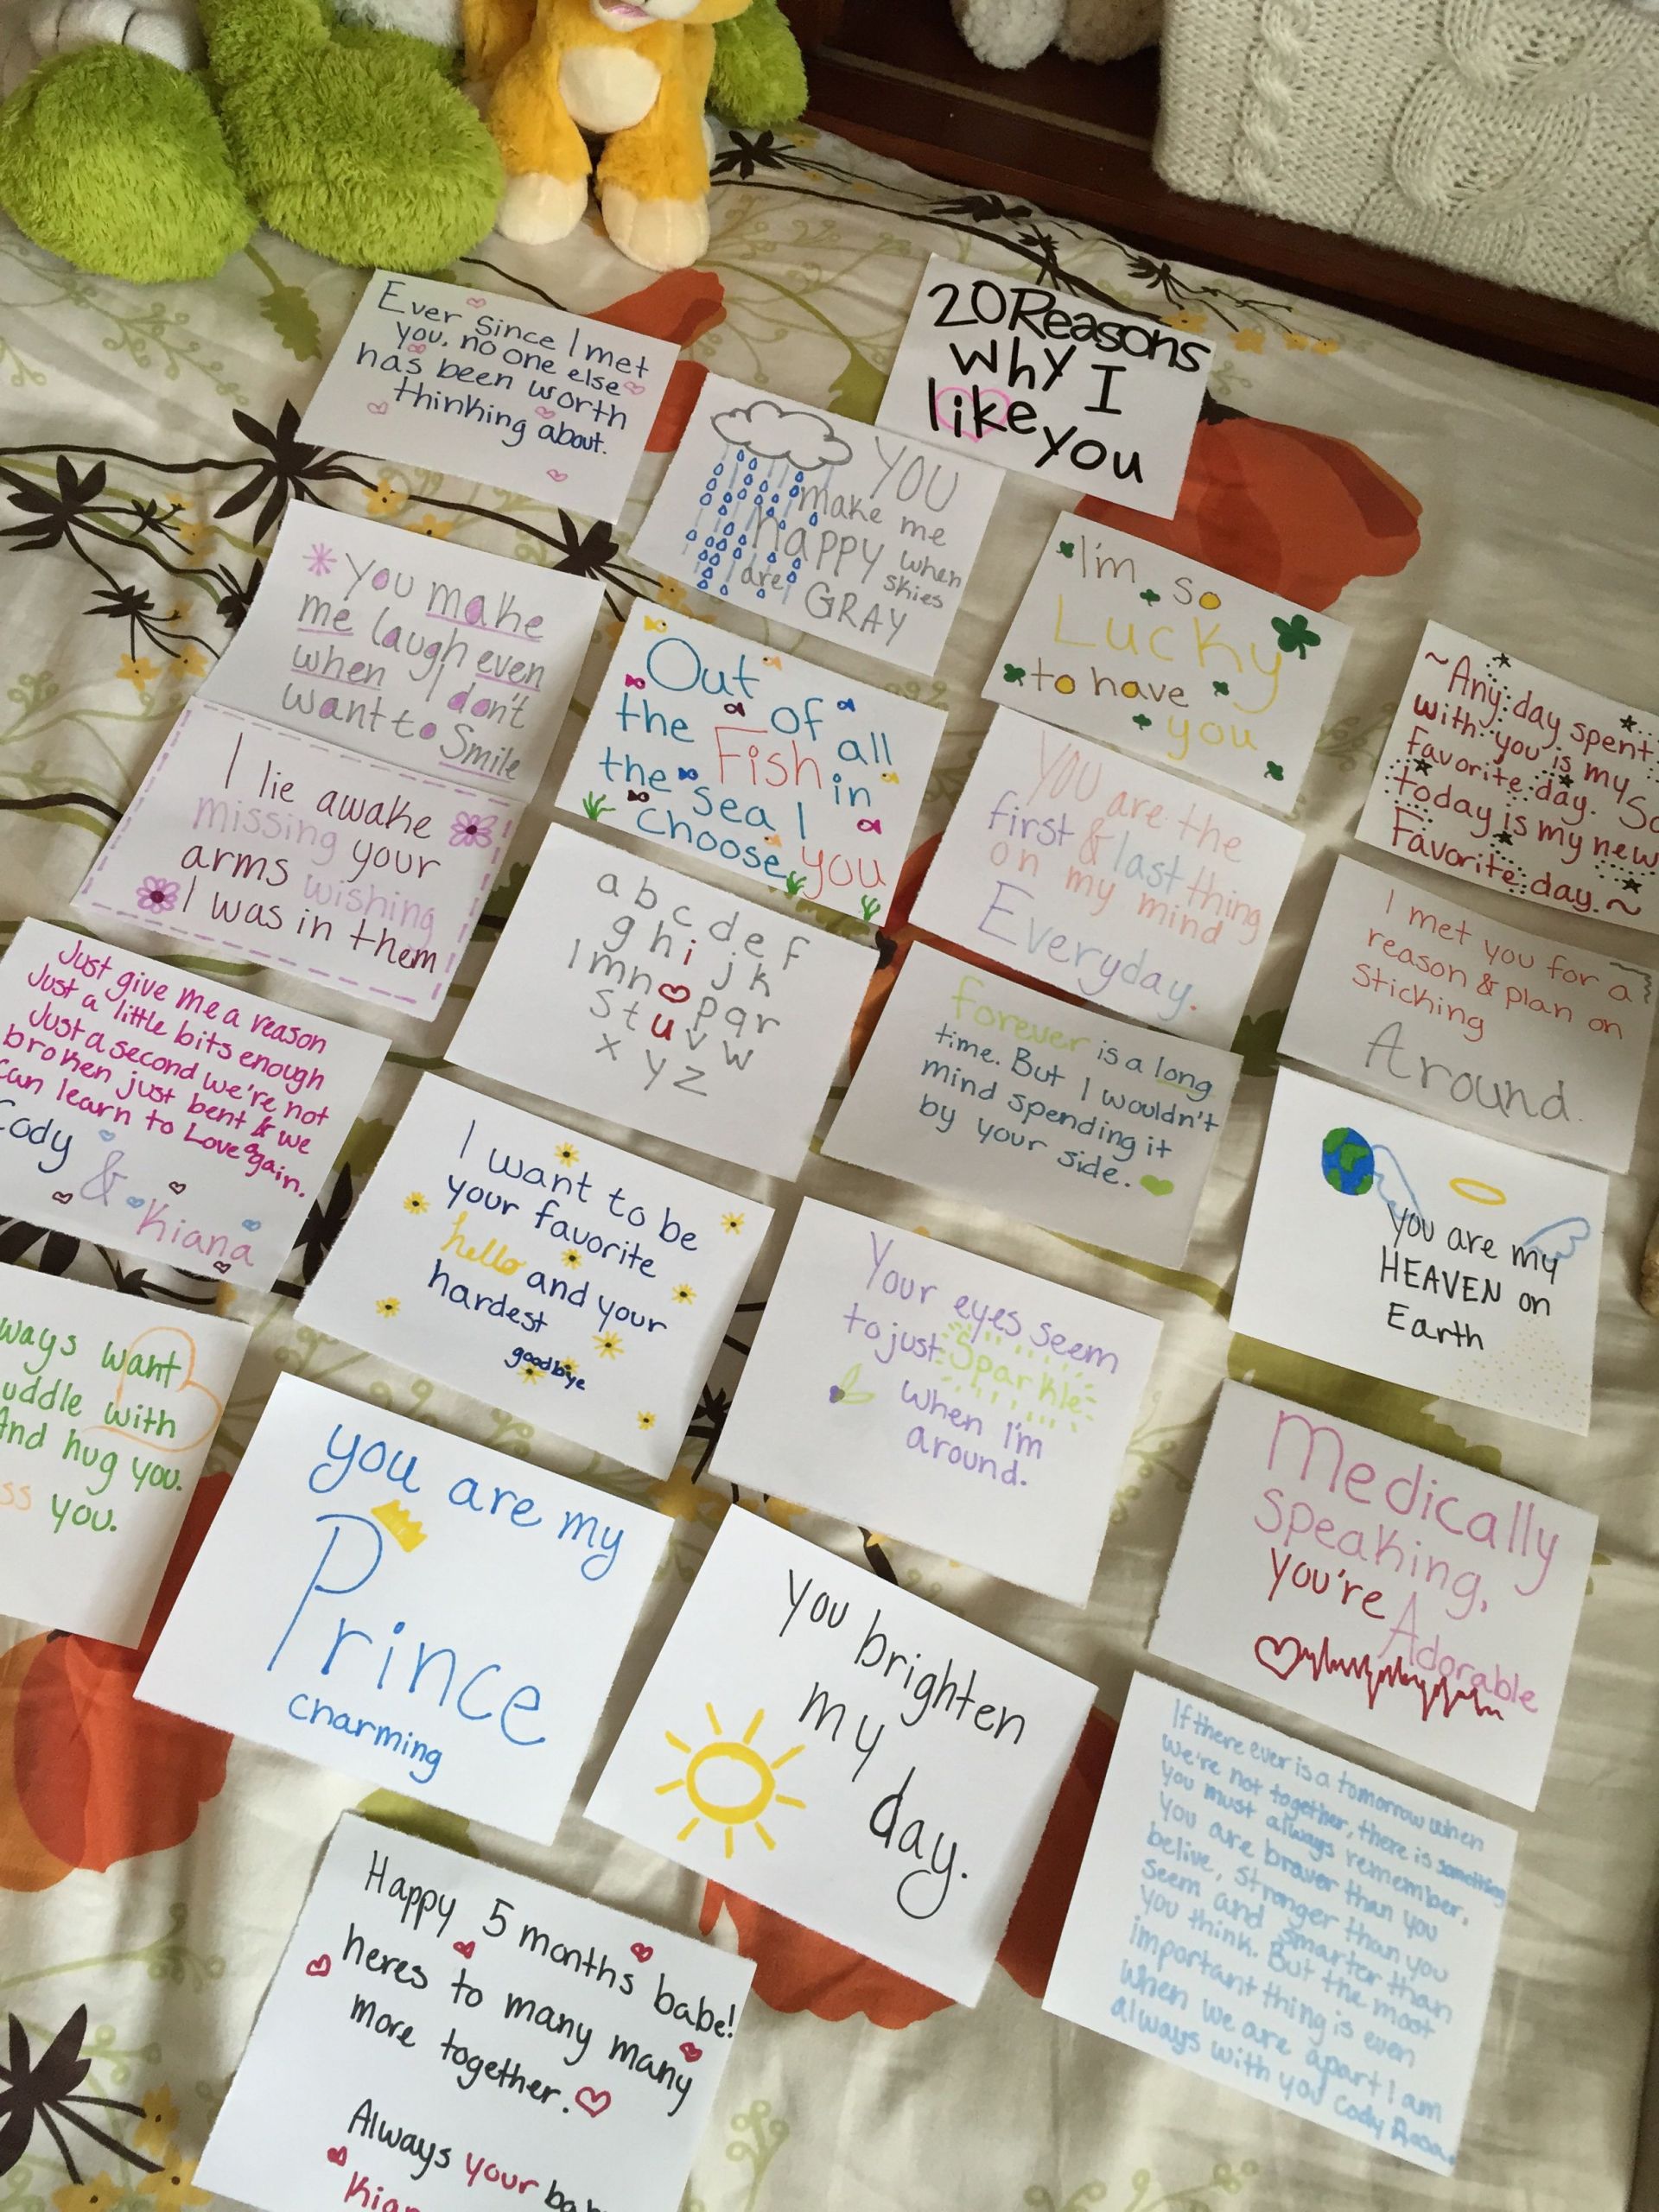 20 Reasons
why I
like you
Ever since I met
you, no one else
has been worth
thinking about.
YOU
make me
happy when
skies
are
GRAY
I'm so
Lucky
to have
you
~Any day spent
with you is my
favorite day. So
today is my new
Favorite day.~
You make
me laugh even
when I don't
want to Smile
Out of all
the Fish in
the sea I
choose you
You are the
first & last thing
on my mind
Everyday.
I met you for a
reason & plan on
Sticking
Around.
I lie awake
missing your
arms wishing
I was in them
a b c d e f
g h i j k
l m n o p q r
s t u v w
x y z
forever is a long
time. But I wouldn't
mind spending it
by your side.
you are my
HEAVEN on
Earth
Just give me a reason
Just a little bits enough
Just a second we're not
broken just bent & we
can learn to Love again.
Cody
&
Kiana
I want to be
your favorite
hello and your
hardest
goodbye
Your eyes seem
to just Sparkle
when I'm
around.
Medically
speaking,
you're Adorable
ways want
uddle with
And hug you.
ss you.
you are my
Prince
charming
You brighten
my
day.
If there ever is a tomorrow when
we're not together, there is something
you must always remember,
you are braver than you
belive, stronger than you
seem and smarter than
you think. But the most
important thing is even
when we are apart I am
always with you Cody
Happy 5 months babe!
heres to many many
more together.
Always your bab
Kian